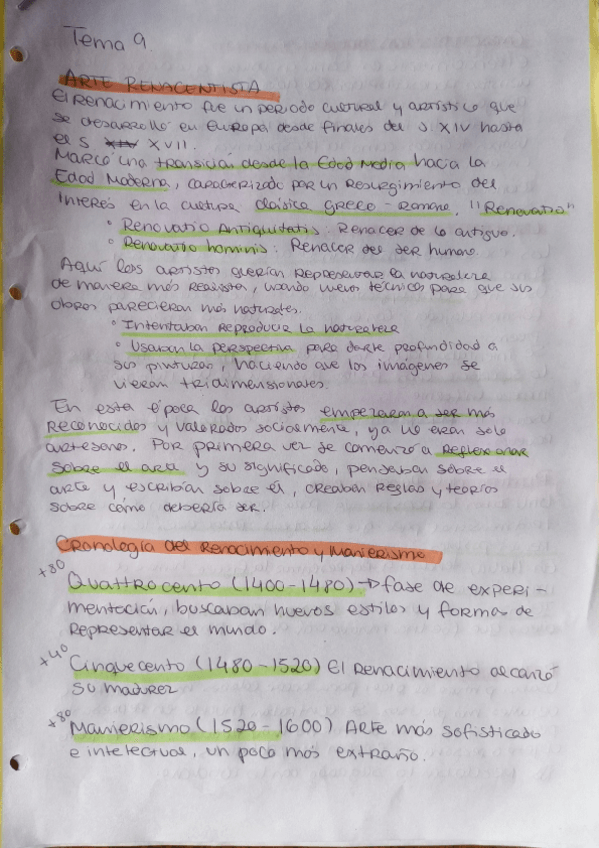 Tema 9.
ARTE RENACENTISTA
El renacimiento fue un periodo cultural y artístico que
se desarrolló en Europa desde finales del S. XIV hasta
el S XVII.
Marcó una transición desde la Edad Media hacia la
Edad Moderna, caracterizado por un Resurgimiento del
interés en la cultura clásica greco-romana. "Renovatio"
° Renovatio Antiquitatis: Renacer de lo antiguo.
° Renovatio hominis: Renacer del ser humano.
Aquí los artistas querían Representar la naturaleza
de manera más realista, usando nuevas técnicas para que sus
obras parecieran más naturales.
° Intentaban Reproducir la naturaleza
° Usaban la perspectiva para darle profundidad a
sus pinturas, haciendo que las imágenes se
vieran tridimensionales.
En esta época los artistas empezaron a ser más
reconocidos y valorados socialmente, ya no eran solo
artesanos. Por primera vez se comenzó a Reflexionar
sobre el arte y su significado, pensaban sobre el
arte y escribían sobre él, creaban Reglas y teorías
sobre cómo debería ser.
Cronología del Renacimiento y Manierismo
+80
Quattrocento (1400-1480) → fase de experi-
mentación, buscaban nuevos estilos y forma de
Representar el mundo.
+40
Cinquecento (1480-1520) El Renacimiento alcanzó
su madurez
+80
Manierismo (1520-1600) Arte más sofisticado
e intelectual, un poco más extraño.